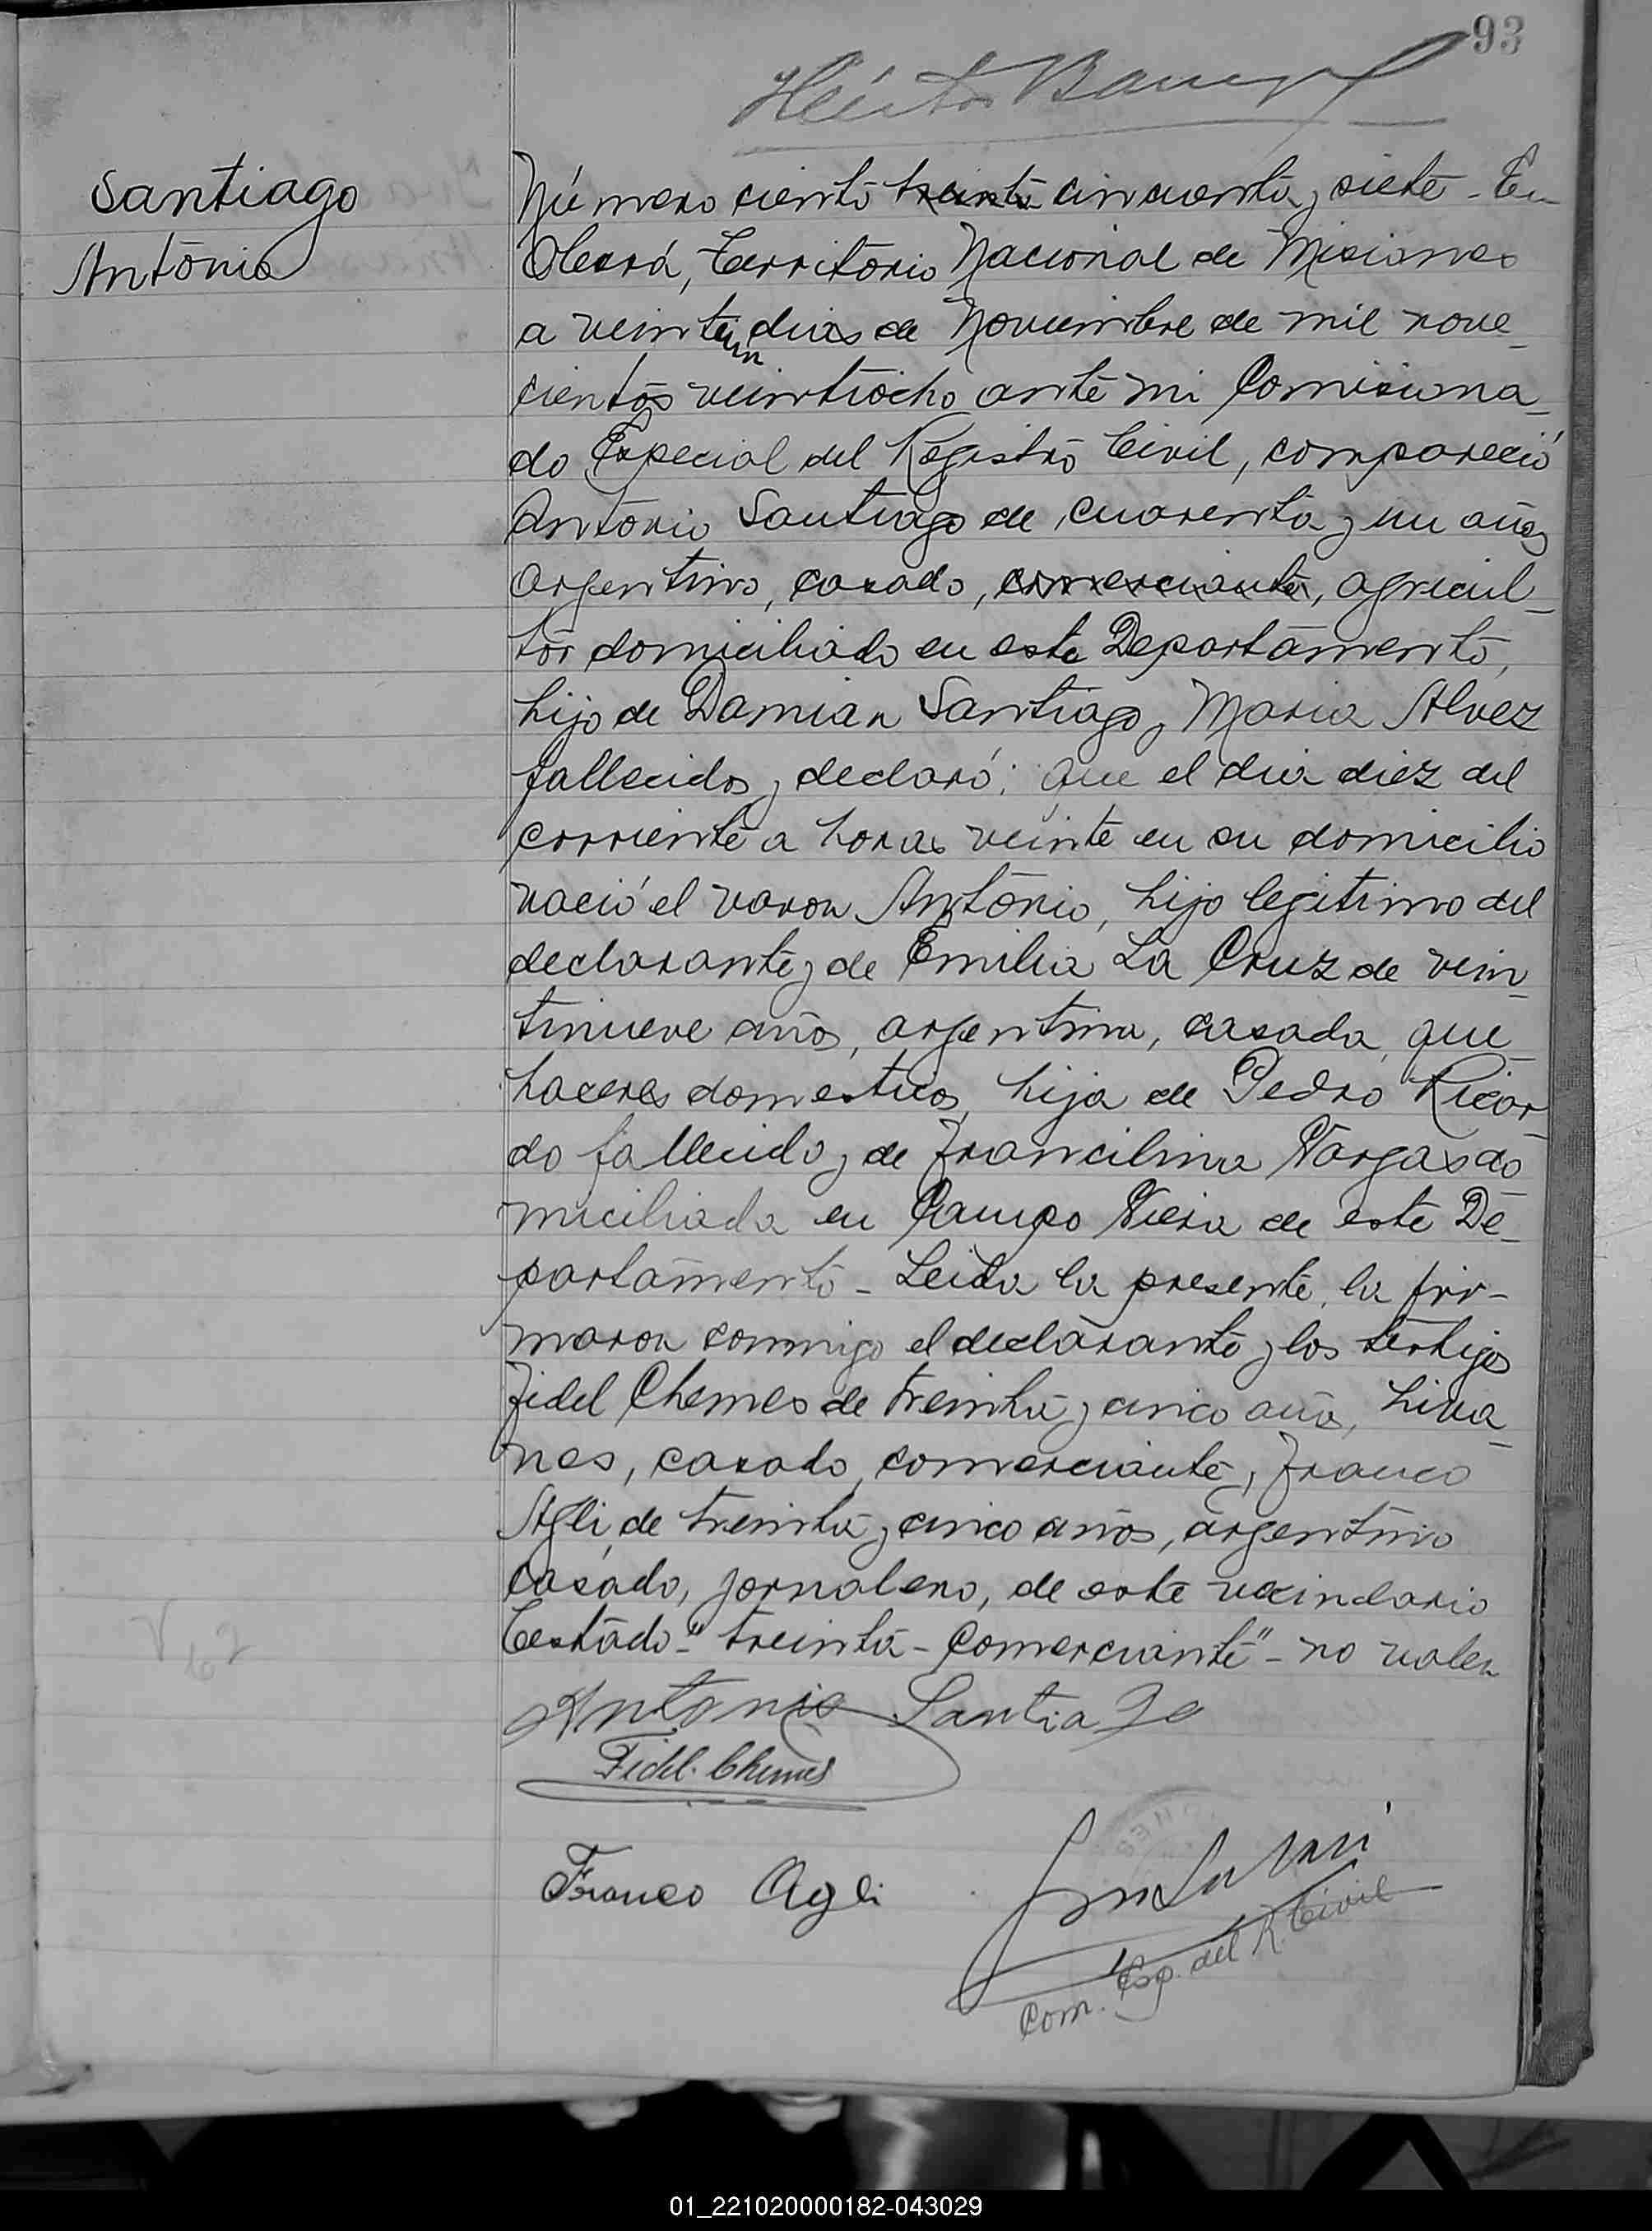 93
Santiago
Antonio
Número ciento treinta cincuenta y siete - En
Oberá, Territorio Nacional de Misiones
a veintiun dias de Noviembre de mil nove_
cientos veintiocho ante mi Comisiona_
do Especial del Registro Civil, compareció
Antonio Santiago de cuarenta y un años
argentino, casado, comerciante, agricul_
tor domiciliado en este Departamento,
hijo de Damian Santiago y Maria Alvez
fallecidos y declaró: que el dia diez del
corriente a horas veinte en su domicilio
nació el varon Antonio, hijo legitimo del
declarante y de Emilia La Cruz de vein_
tinueve años, argentina, casada, que_
haceres domesticos, hija de Pedro Ricar_
do fallecido y de Francilina Vargas do_
miciliada en Campo Viera de este De_
partamento - Leida la presente, la fir-
maron conmigo el declarante y los testigos
Fidel Chemes de treinta y cinco años, Liba_
nes, casado, comerciante y Franco
Agli, de treinta y cinco años, argentino
casado, jornalero, de este vecindario
Testado - "treinta - Comerciante" - no valen
Antonio Santiago
Fidel Chemes
Franco Agli
Com. Esp. del R. Civil
01_221020000182-043029